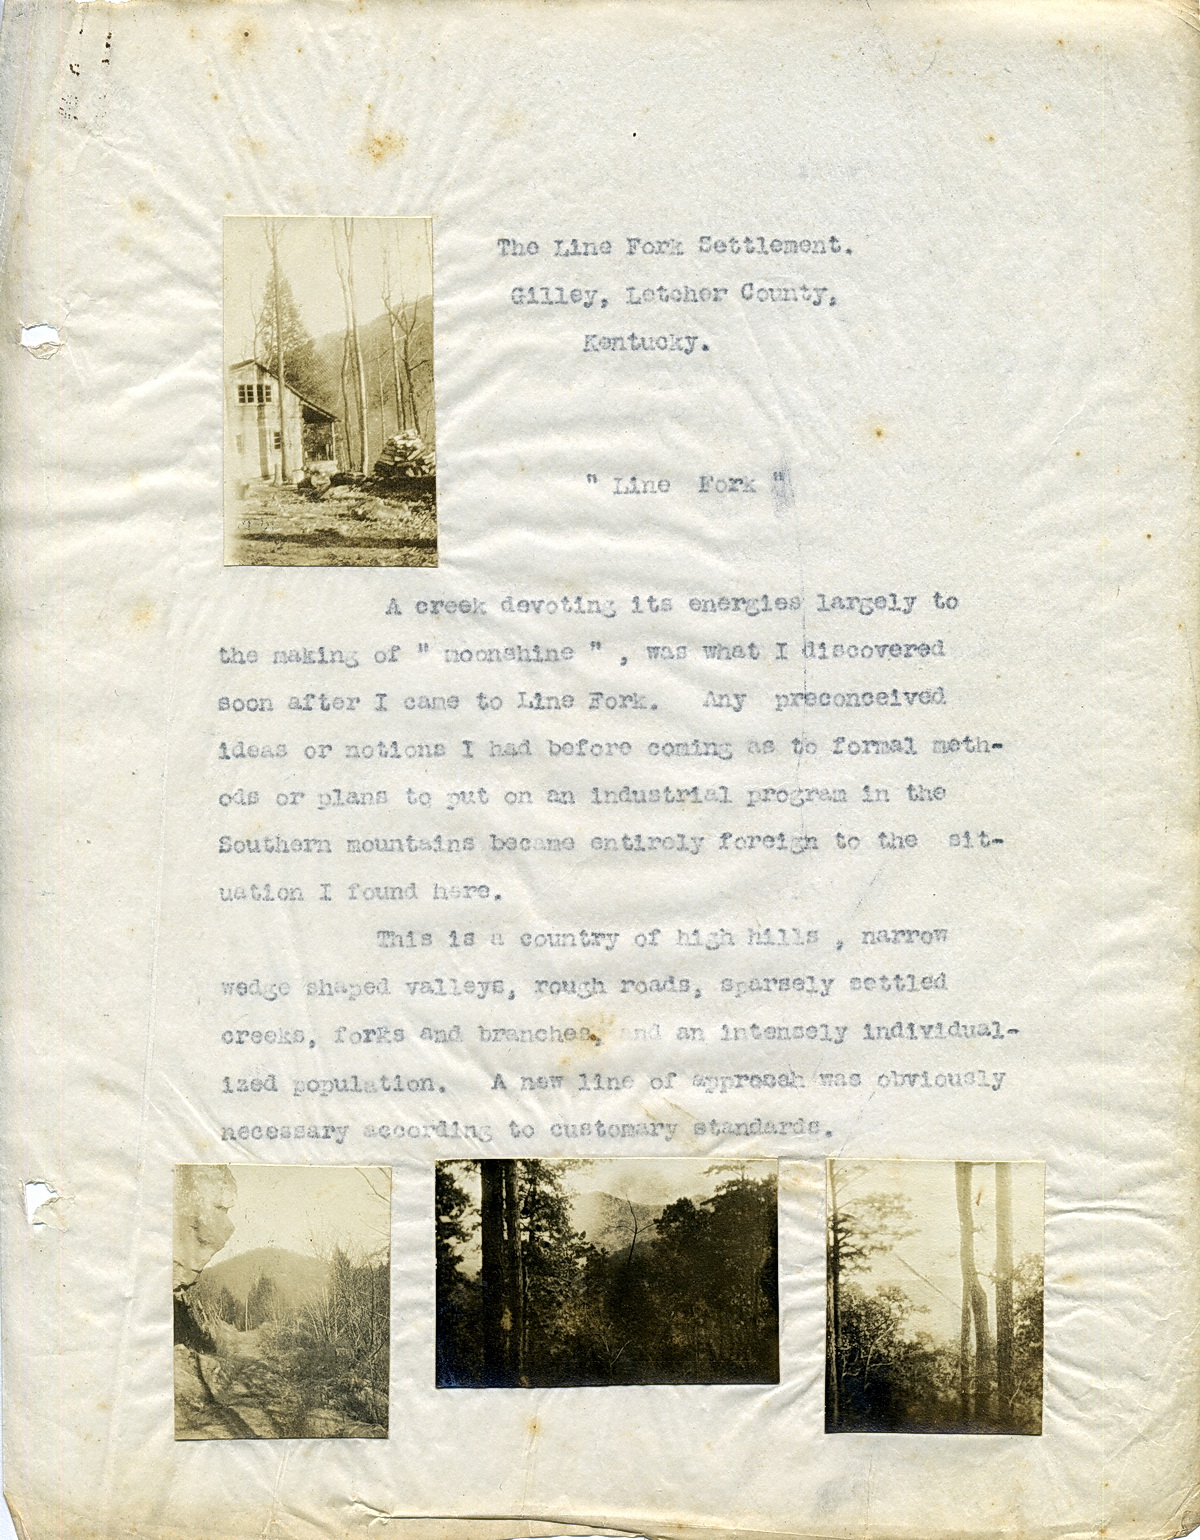 The Line Fork Settlement.
Gilley, Letcher County,
Kentucky.
" Line Fork "
A creek devoting its energies largely to
the making of " moonshine " , was what I discovered
soon after I came to Line Fork. Any preconceived
ideas or notions I had before coming as to formal meth-
ods or plans to put on an industrial program in the
Southern mountains became entirely foreign to the sit-
uation I found here.
This is a country of high hills , narrow
wedge shaped valleys, rough roads, sparsely settled
creeks, forks and branches, and an intensely individual-
ized population. A new line of approach was obviously
necessary according to customary standards.